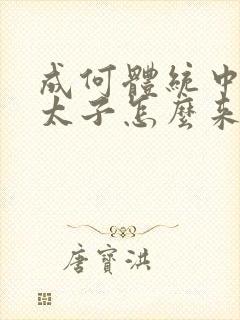 成何體統中
太子怎麼來
唐寶洪